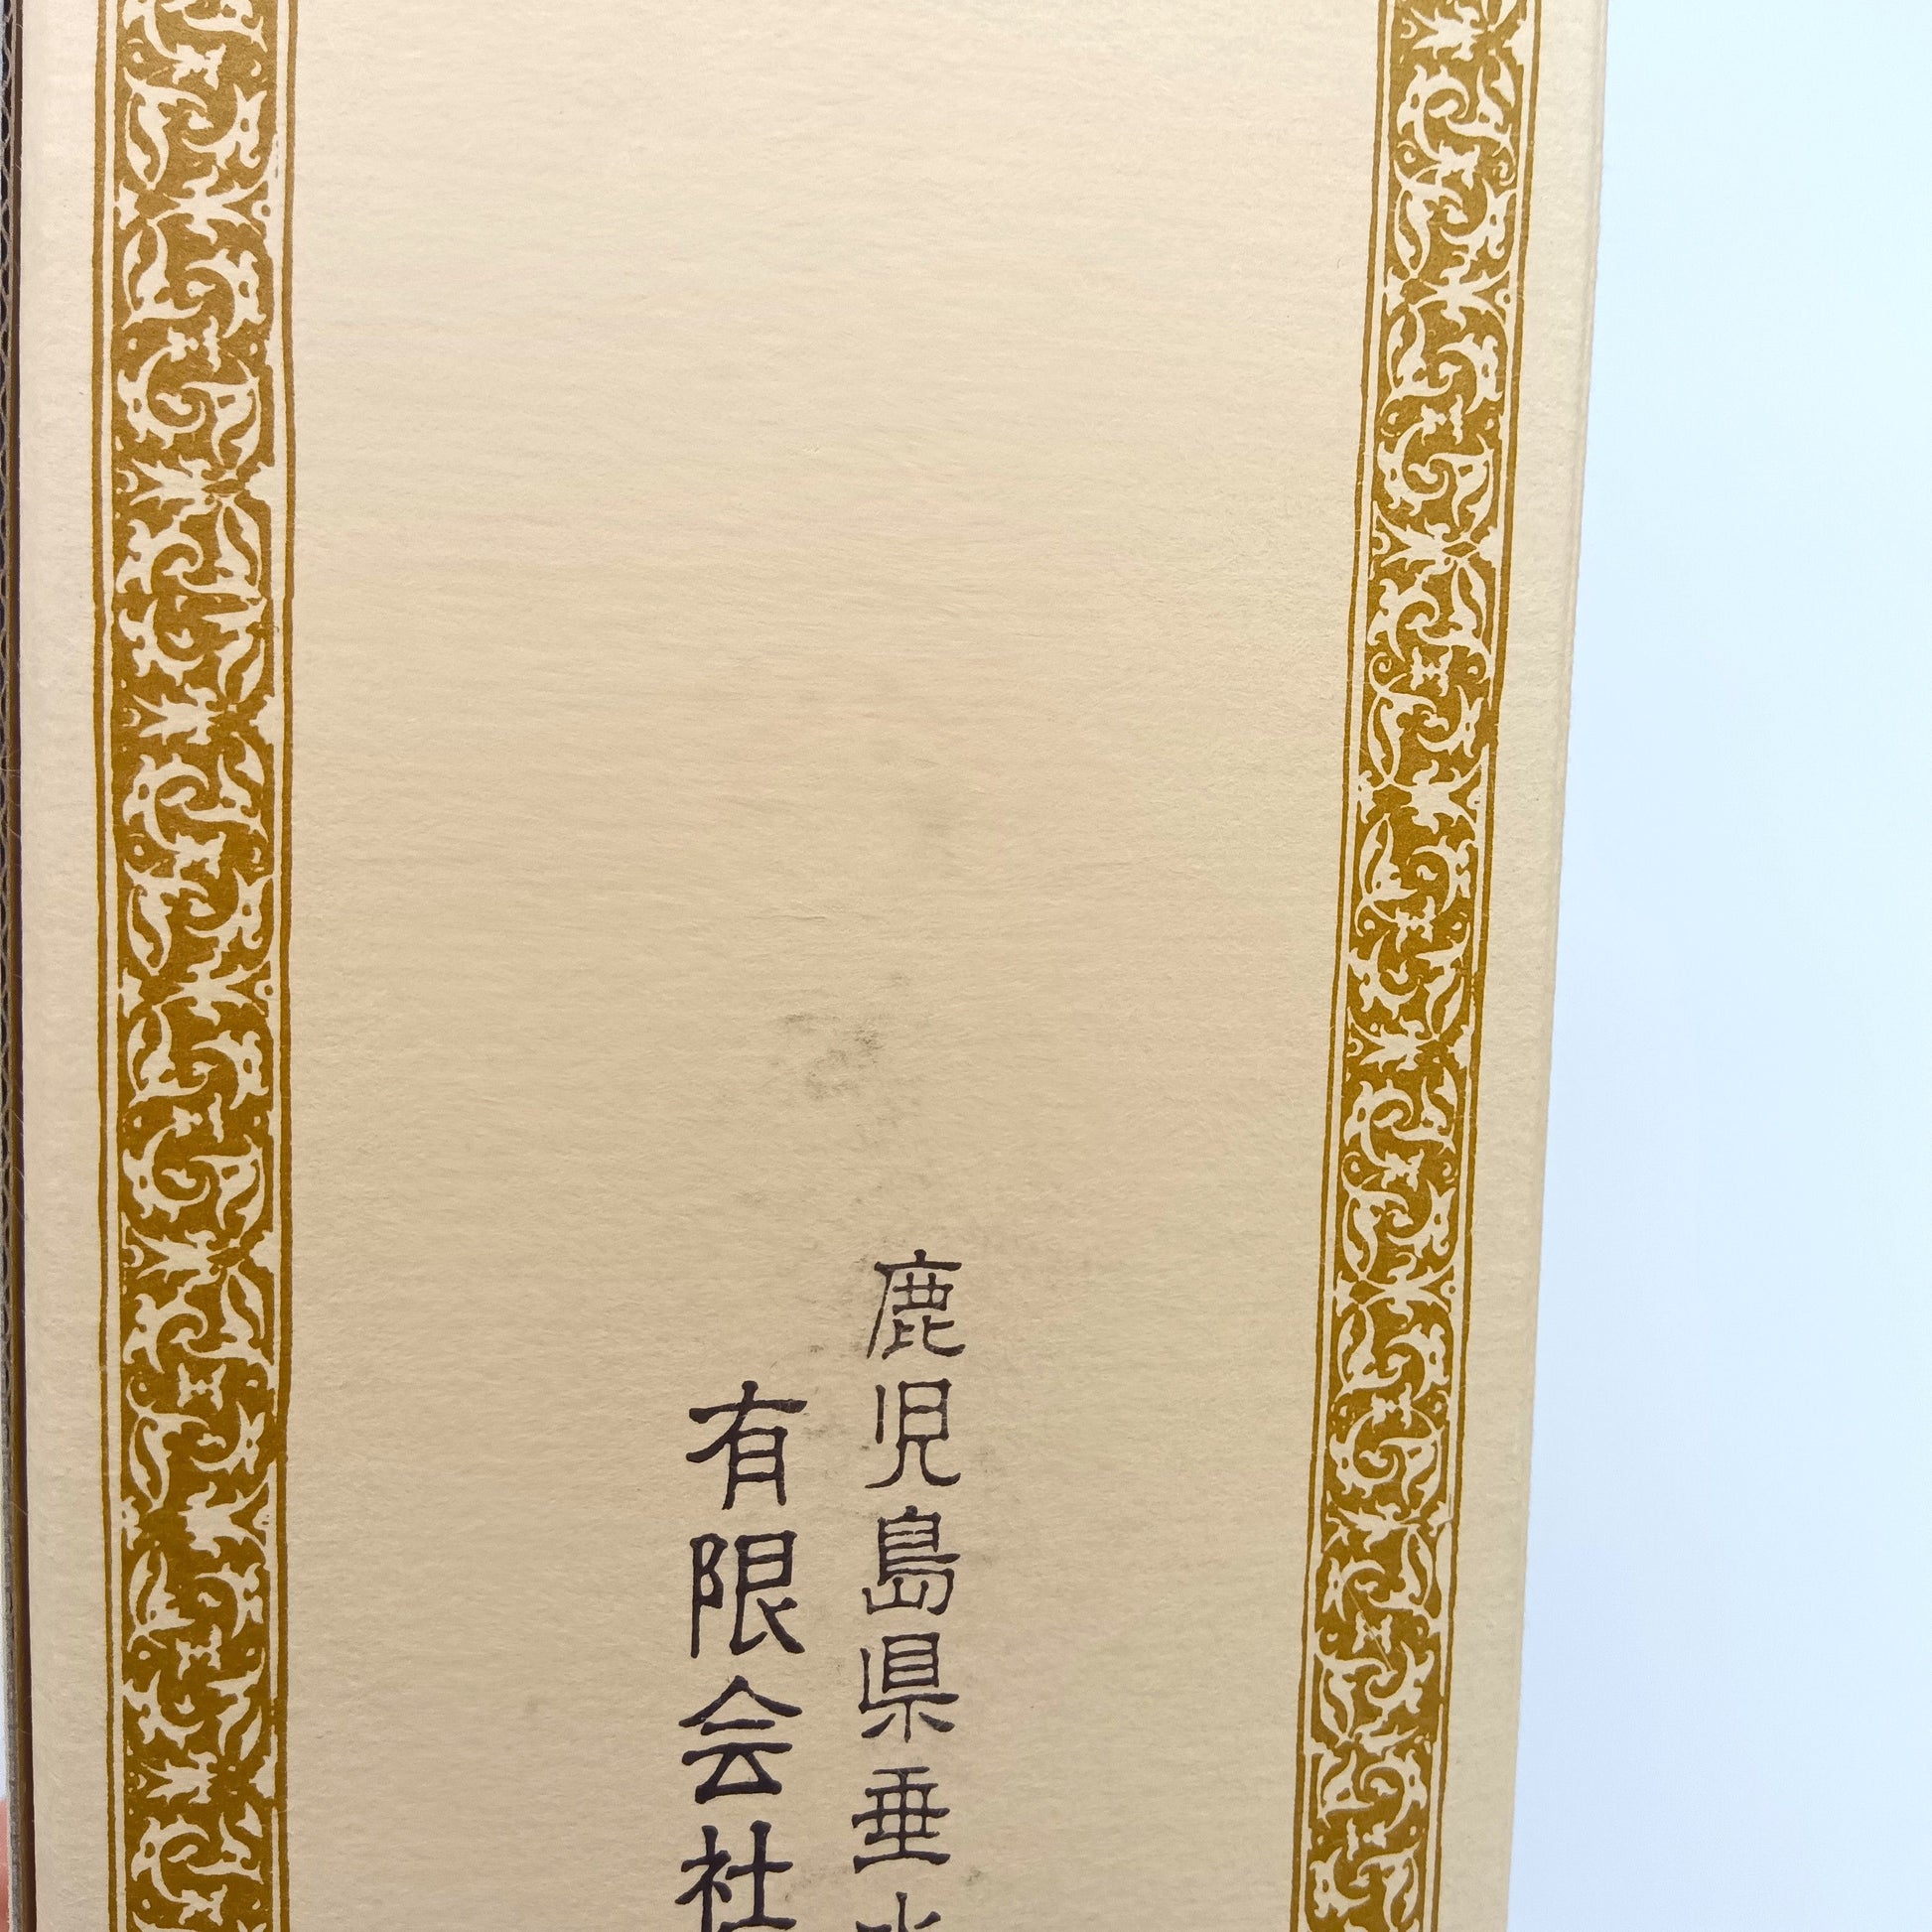 鹿児島県垂
有限会社